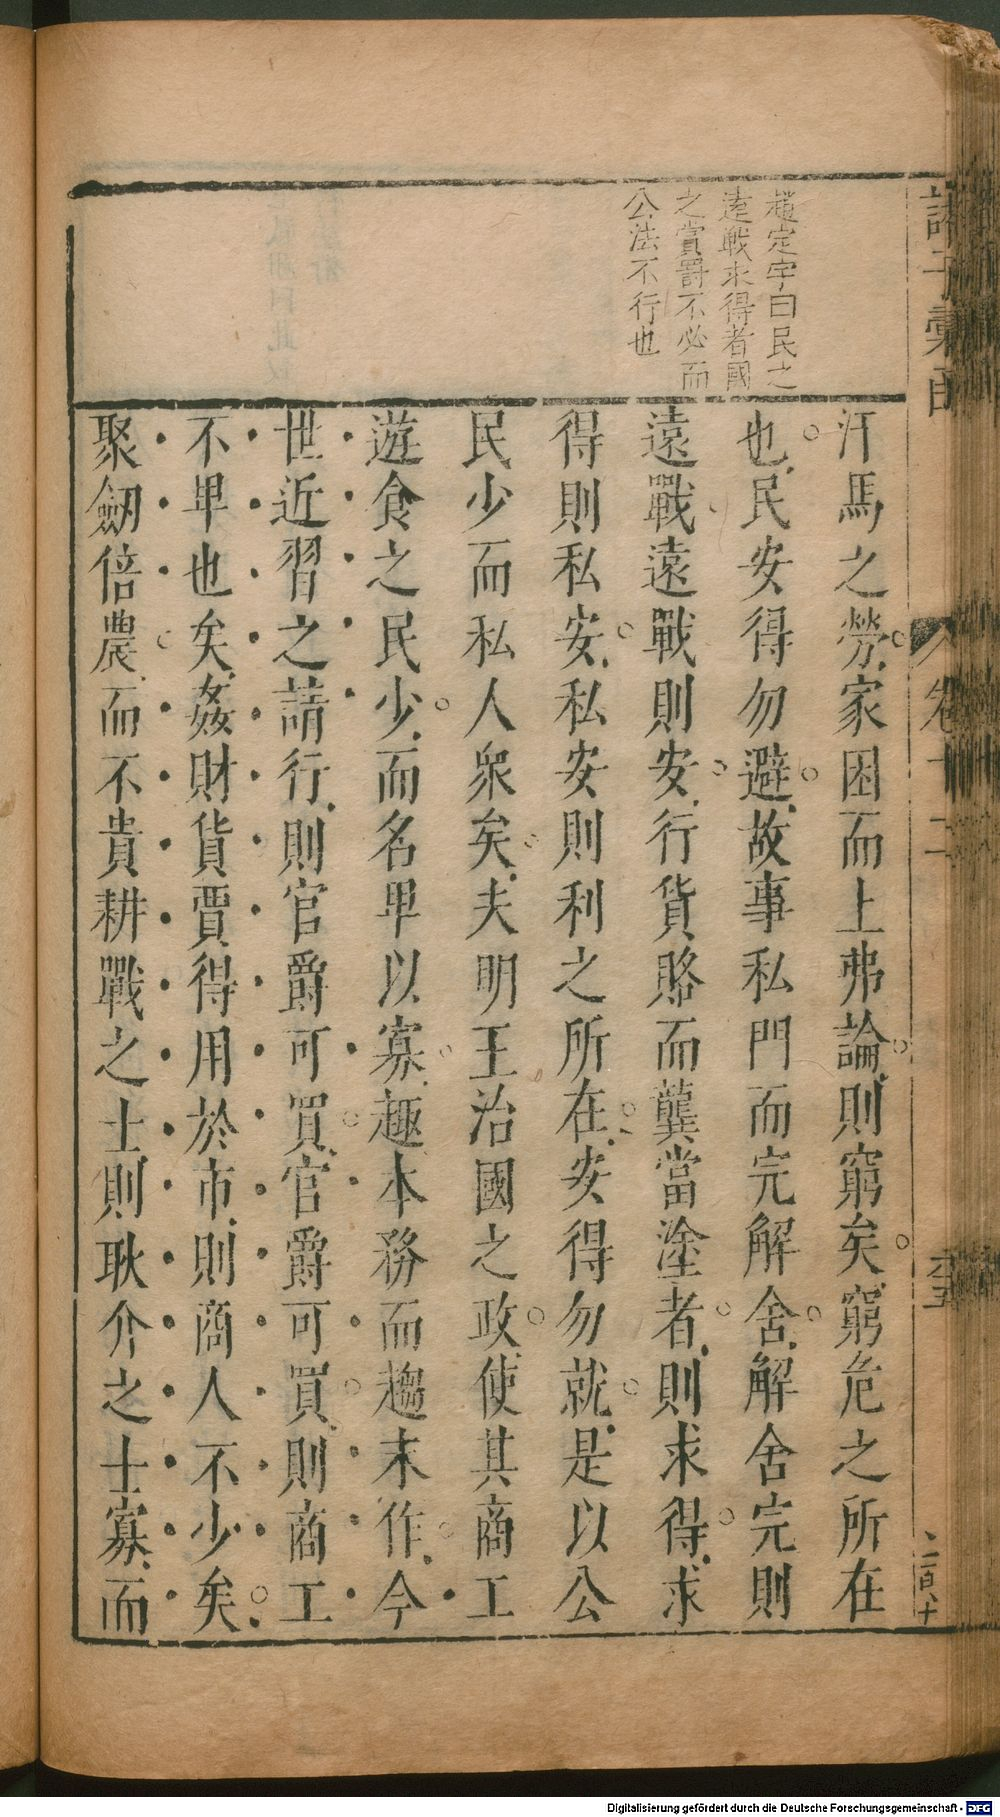 諸子彙函
卷十二
趙定宇曰民之
遠戰求得者國
之賞罰不必而
公法不行也
汗馬之勞家困而上弗論則窮矣窮危之所在
也民安得勿避故事私門而完解舍解舍完則
遠戰遠戰則安行貨賂而龔當塗者則求得求
得則私安私安則利之所在安得勿就是以公
民少而私人衆矣夫明王治國之政使其商工
遊食之民少而名卑以寡趣本務而趨末作今
世近習之請行則官爵可買官爵可買則商工
不卑也矣姦財貨賈得用於市則商人不少矣
聚劒倍農而不貴耕戰之士則耿介之士寡而
Digitalisierung gefördert durch die Deutsche Forschungsgemeinschaft - DFG